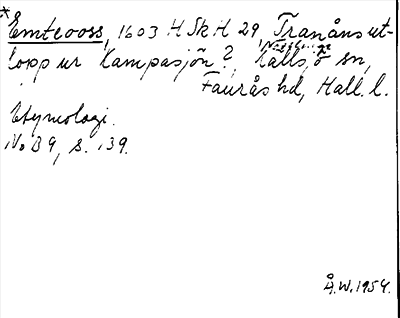 *Emteooss, 1603 HSkH 29, Tranåns ut-
lopp ur Lampasjön?, Källsjö sn,
Faurås hd, Hall. l.
Etymologi.
NoB 9, s. 139.
Å.W. 1954.